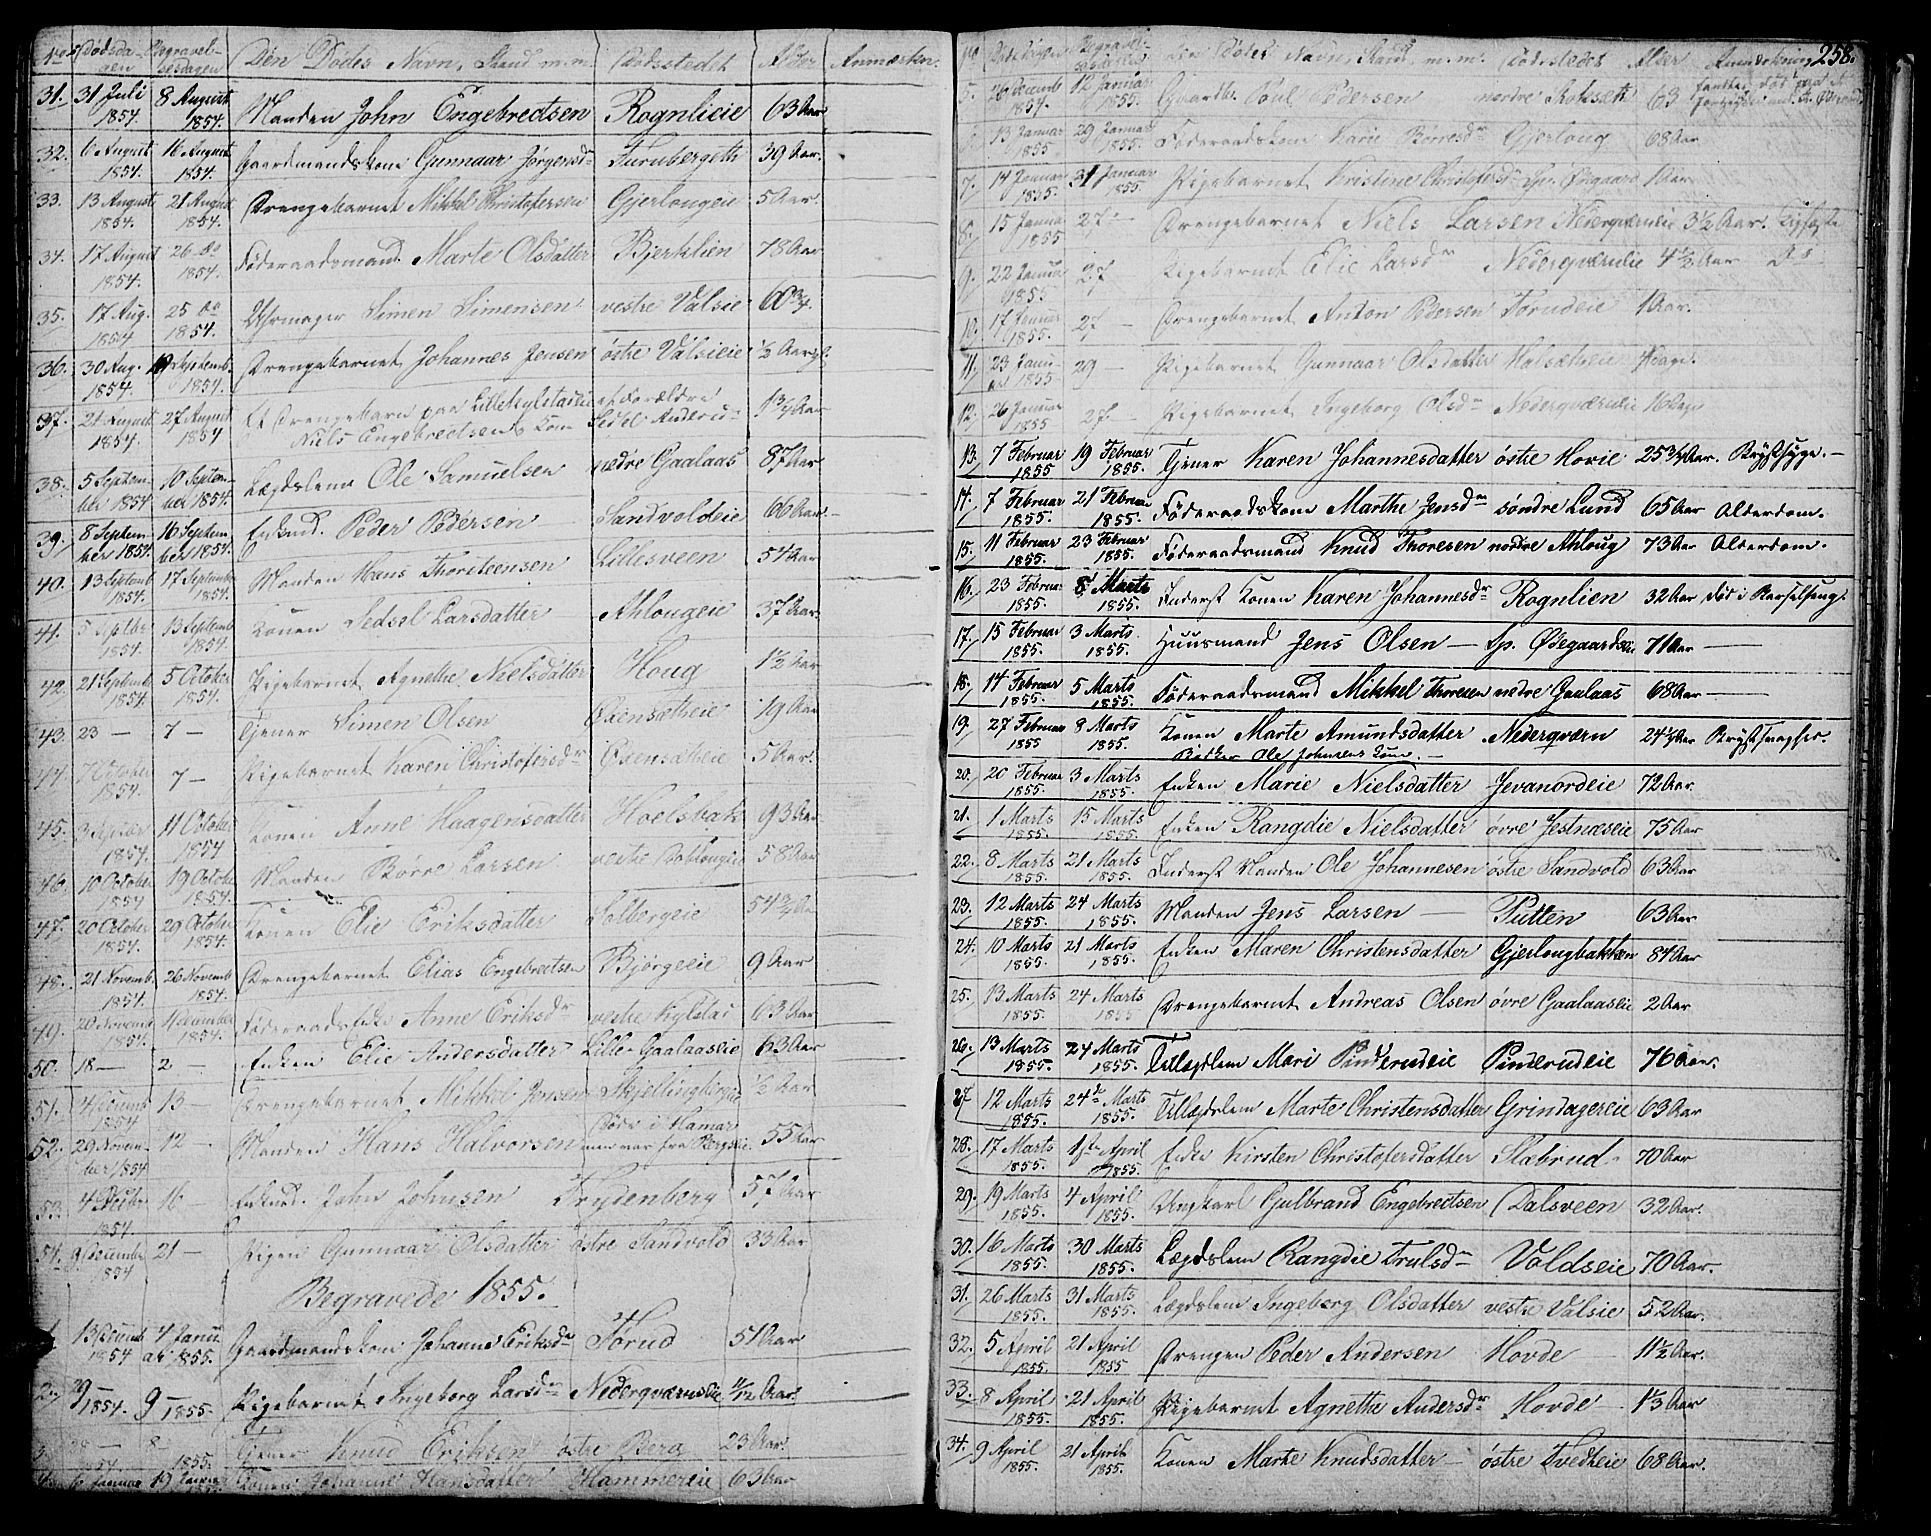 No Dødsdagen Begravelsesdagen Den Dødes Navn, Stand m.m. Dødsstedet Alder Anmærkn.
31. 31 Juli 1854. 8 August 1854. Manden John Engebredtsen Rognlieie 63 Aar
32. 6 August 1854. 16 August 1854. Gaardmandskone Gunnaar Jørgensdr Furubergeth 39 Aar.
33. 13 August 1854. 21 August 1854. Drengebarnet Mikkel Christofersen Gjerlougeie 5 Aar.
34. 17 August 1854. 26 do 1854. Føderaadsmand. Marte Olsdatter Bjerklien 78 Aar
35. 17 Aug. 1854 25 do 1854. Uhrmager Simen Simensen vestre Valseie 60 3/4.
36. 30 Aug. 1854. 19 Septemb. 1854. Drengebarnet Johannes Jensen østre Valseie 1/2 Aar
37. 21 August 1854. 27 August 1854 Et Drengebarn paa Lillekylstadeie af Forældre
Niels Engebredtsen & Kone Sedsel Andersdr
38. 5 September 1854 10 September 1854. Lægdslem Ole Samuelsen nedre Gaalaas 87 Aar
39. 8 September 1854. 16 September 1854. Enkmd. Peder Pedersen Sandvoldeie 66 Aar
40. 13 Septemb. 1854. 17 Septembr 1854. Manden Hans Thorsteensen Lillesveen 54 Aar
41. 5 Septbr 1854. 13 Septemb 1854. Konen Sedsel Larsdatter Ahlougeie 37 Aar.
42. 21 Septemb 1854. 5 October 1854. Pigebarnet Agnethe Nielsdatter Houg 1 1/2 Aar
43. 23 — 7 — Tjener Simen Olsen Oxensætheie 19 Aar
44. October 1854. 7 — Pigebarnet Karen Christofersdr Oxensætheie 5 Aar.
45. 3 October 1854. 11 October 1854 Konen Anne Haagensdatter Hoelsbak 93 Aar
46. 10 October 1854 19 October 1854. Manden Børre Larsen vestre 58 Aar
47. 20 October 1854. 29 October 1854. Konen Elie Eriksdatter Solbergeie 54 3/4 Aar
48. 21 Novemb. 1854. 26 Novemb 1854. Drengebarnet Elias Engebretsen Bjørgeeie 9 Aar
49. 20 Novemb 1854. 4 December 1854. Føderaadsenke Anne Eriksdr vestre Kylstad 63 Aar
50. 18 — 2 — Enken Elie Andersdatter Lille Gaalaaseie 63 Aar
51. 4 Decemb 1854 13 — Drengebarnet Mikkel Jensen Skjellingbergeie 1/2 Aar
52. 29 November 1854 12 — Manden Hans Halvorsen Døde i Hamar men var fra Bergseie 55 Aar
53. 4 Decbr 1854. 16 — Enkmd. John Johnsen Frydenberg 57 Aar
54. 9 December 1854 21 — Pigen Gunnaar Olsdatter østre Sandvold 33 Aar
Begravede 1855.
1 13 Decemb 1854 4 Januar 1855. Gaardmandskone Johanne Eriksdr Torud 51 Aar
2. 29 — 1854. 9 — 1855. Pigebarnet Ingeborg Larsdr Nederqværnseie 11/12 Aar.
3. 28 — 1854. 8 — 1855. Tjener Knud Eriksen østre Berg 23 Aar.
4. Januar 19 Januar Konen Johanne Hansdatter Hammereie 63 Aar
258.
No Dødsdagen Begravelsesdagen Den Dødes Navn, Stand m.m. Dødsstedet Alder Anmærkning
5. 26 Decemb 1854. 12 Januar 1855. Gaardb. Poul Pedersen nordre Kolsæth 63 fandtes død ved
6. 13 Januar 1855 29 Januar 1855. Føderaadskone Kari Børresdr Gjerloug 68 Aar
7. 14 Januar 1855. 31 Januar 1855. Pigebarnet Kristine Christofersdr Sp. Ødegaard 1 Aar
8. 15 Januar 1855 27 — Drengebarnet Niels Larsen Nederqværneie 3 1/2 Aar.
9. 22 Januar 1855 27 Pigebarnet Elie Larsdr Nederqværneie 4 1/2 Aar Do
10. 17 Januar 1855. 27 — Drengebarnet Anton Pedersen Torudeie 1 Aar.
11. 23 Januar 1855 29 — Pigebarnet Gunnaar Olsdatter Holsætheie dage.
12. 26 Januar 1855 27. — Pigebarnet Ingeborg Olsdr Nederqværneie 16 Dage
13. 7 Februar 1855 19 Februar 1855. Tjener Karen Johannesdatter østre Hovie 25 3/4 Aar. Brystsyge. —
14. 7 Februar 1855. 21 Februar 1855. Føderaadskone Marthe Jensdr søndre Lund 65 Aar Alderdom.
15. 11 Februar 1855. 23 Februar 1855. Føderaadsmand Knud Thoresen nedre Ahloug 73 Aar Alderdom.
16. 23 Februar 1855. 8 Marts 1855. Inderst Konen Karen Johannesdr Rognlien 32 Aar død i Barselseng.
17. 15 Februar 1855. 3 Marts 1855. Huusmand Jens Olsen — Sp. Ødegaardseie 71 Aar —
18. 14 Februar 1855. 5 Marts 1855. Føderaadsmand Mikkel Thoresen nedre Gaalaas 68 Aar —
19. 27 Februar 1855 8 Marts 1855. Konen Marte Amundsdatter Nederqværn 24 1/2 Aar
Bødker Ole Johnsens Kone. —
20. 20 Februar 1855. 3 Marts 1855. Enken Marie Nielsdatter Jevanordeie 72 Aar.
21. 1 Marts 1855. 15 Marts 1855. Enken Rangdie Nielsdatter øvre Jestnæseie 75 Aar
22. 8 Marts 1855. 21 Marts 1855. Inderst Manden Ole Johannesen østre Sandvold 63 Aar
23. 12 Marts 1855. 24 Marts 1855. Manden Jens Larsen — Putten 63 Aar
24. 10 Marts 1855. 21 Marts 1855. Enken Maren Christensdatter Gjerlougbakken 84 Aar
25. 13 Marts 1855. 24 Marts 1855 Drengebarnet Andreas Olsen øvre Gaalaaseie 2 Aar
26. 13 Marts 1855. 24 Marts 1855. Tillægdslem Mari Pinderudeie Pinderudeie 76 Aar.
27 12 Marts 1855. 24de Marts 1855. Tillægdslem Marte Christensdatter Grindagereie 63 Aar
28. 17 Marts 1855. 1ste April 1855. Enke Kirsten Christofersdatter Slæbrud. 70 Aar
29. 19 Marts 1855. 4 April 1855. Ungkarl Gulbrand Engebredtsen Dalsveen 32 Aar.
30. 16 Marts 1855. 30 Marts 1855. Lægdslem Rangdie Trulsdr Voldseie 70 Aar.
31. 26 Marts 1855. 31 Marts 1855. Lægdslem Ingeborg Olsdatter vestre Valsie 52 Aar.
32. 5 April 1855. 21 April 1855 Drengen Peder Andersen Hovde 11 1/2 Aar.
33. 8 April 1855. 21 April 1855. Pigebarnet Agnethe Andersdr Hovde 13 Aar
34. 9 April 1855. 21 April 1855. Konen Marte Knudsdatter — østre Tvedteie 68 Aar.